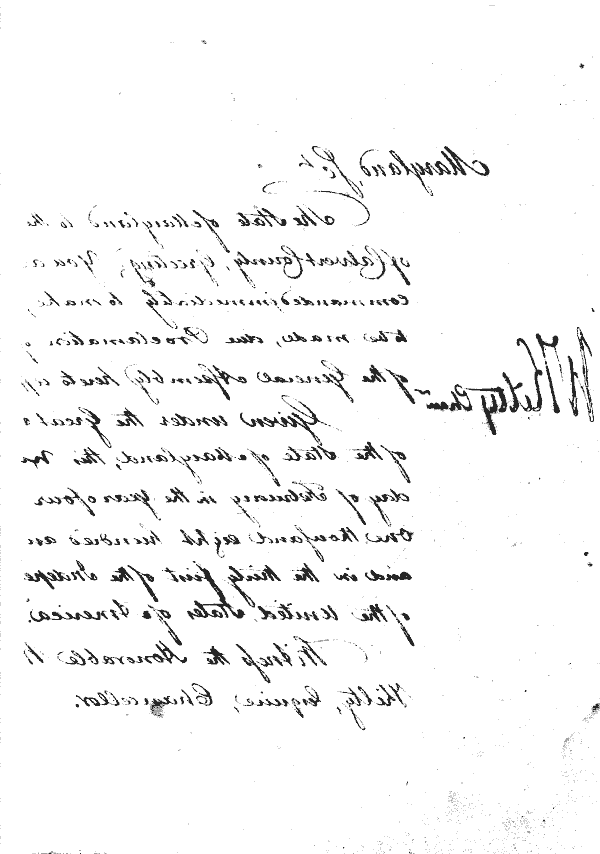 Maryland, Sct.
The State of Maryland to the
of Calvert County, Greeting, You a
commanded immediately to make,
to be made, due Proclamation
of the General Assembly hereto
Given under the Great s
of the State of Maryland, this
day of February in the Year of our
One thousand eight hundred an
and in the thirty first of the Indepe
of the United States of America.
Witness the Honorable W
Kilty, Esquire, Chancellor.
W Kilty Chanr.